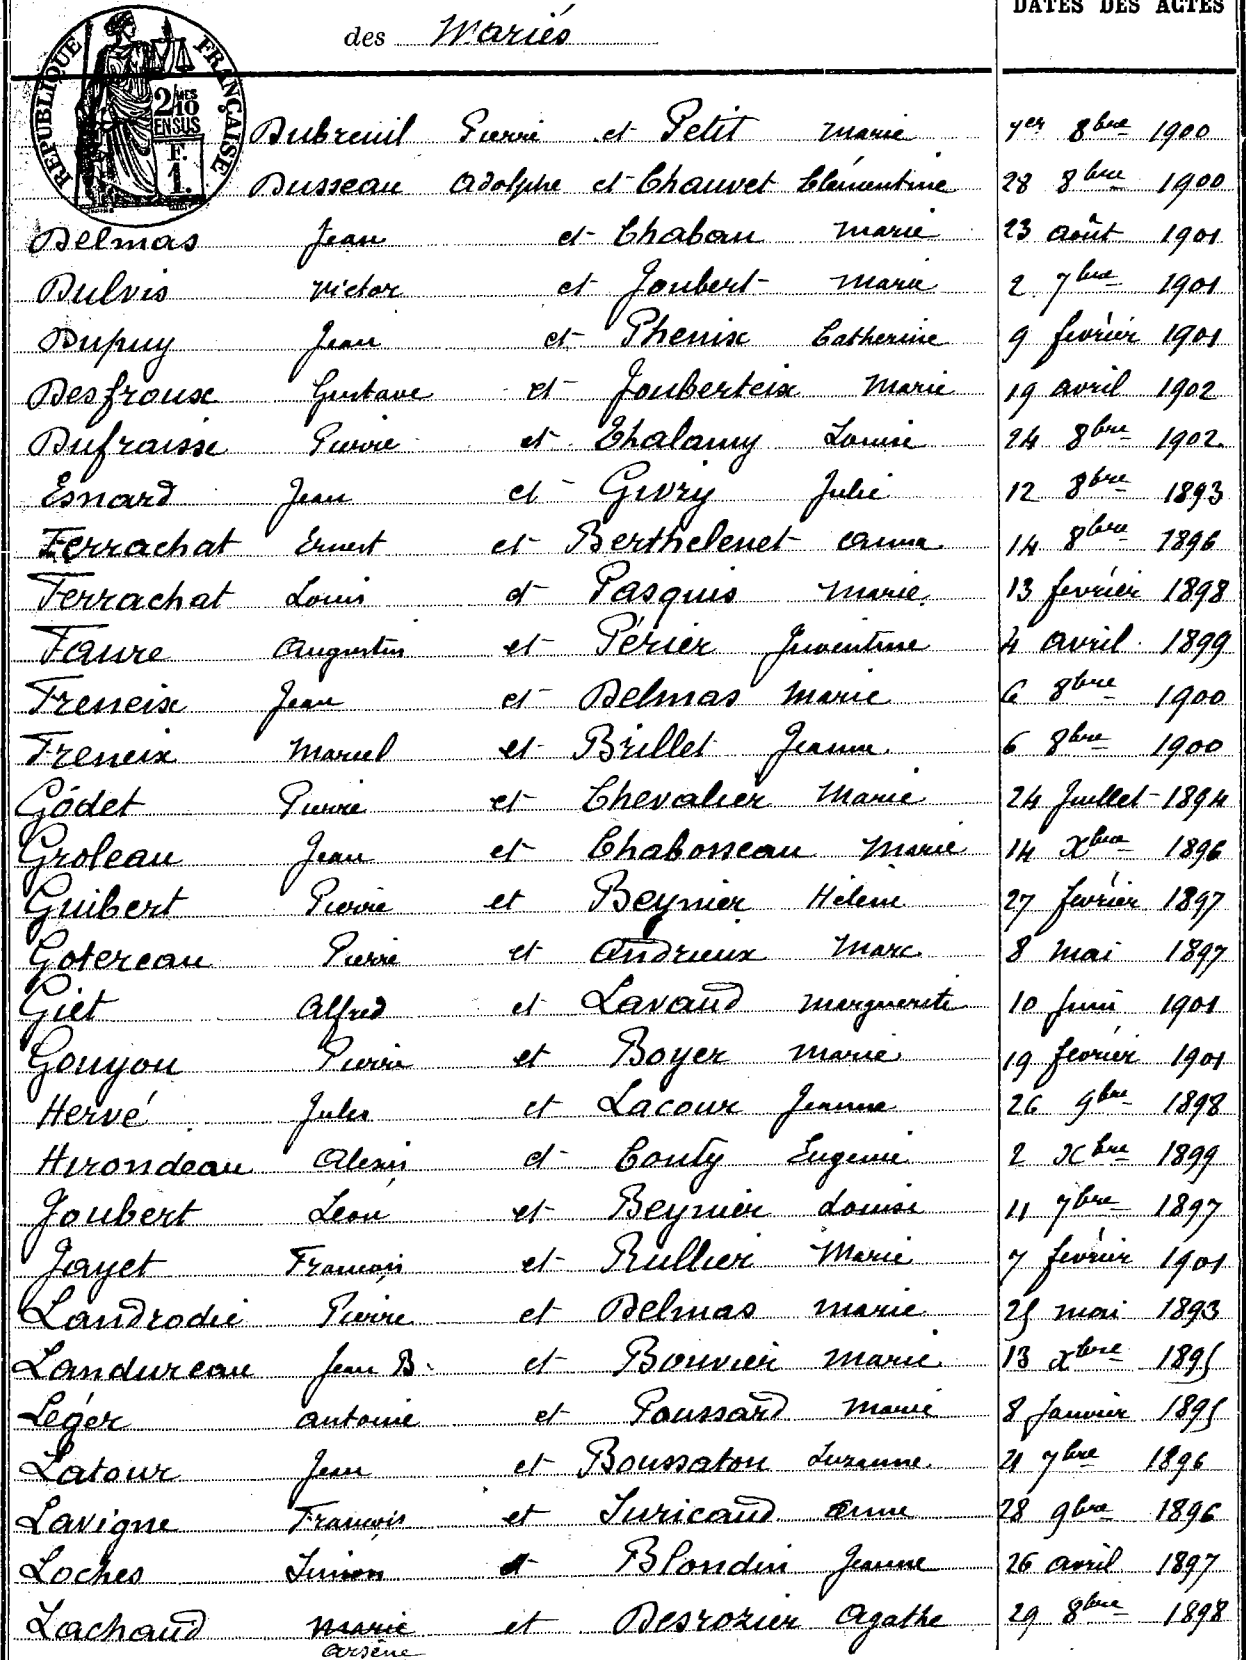 DATES DES ACTES
des Mariés
RÉPUBLIQUE FRANÇAISE
2/10 MES
EN SUS
F.
1.
Dubreuil Pierre et Petit Marie 1er 8bre 1900
Dusseau Adolphe et Chauvet Clémentine 28 8bre 1900
Delmas Jean et Chabau Marie 23 août 1901
Dulvis Victor et Joubert Marie 2 7bre 1901
Dupuy Jean et Phenix Catherine 9 fevrier 1901
Desfroux Gustave et Jouberteix Marie 19 avril 1902
Dufraisse Pierre et Chalamy Louise 24 8bre 1902
Esnard Jean et Givry Julie 12 8bre 1893
Ferrachat Ernest et Berthelenet Anna 14 8bre 1896
Ferrachat Louis et Pasquis Marie 13 fevrier 1898
Faure Augustin et Périer Juventine 4 avril 1899
Freneix Jean et Delmas Marie 6 8bre 1900
Freneix Marcel et Brillet Jeanne 6 8bre 1900
Godet Pierre et Chevalier Marie 24 Juillet 1894
Groleau Jean et Chabosseau Marie 14 Xbre 1896
Guibert Pierre et Beynier Hélène 27 fevrier 1897
Gotereau Pierre et Andrieux Marc 8 Mai 1897
Giet Alfred et Lavaud Marguerite 10 Juin 1901
Gouyou Pierre et Boyer Marie 19 fevrier 1901
Hervé Jules et Lacour Jeanne 26 9bre 1898
Hirondeau Alexis et Couty Eugenie 2 Xbre 1899
Joubert Léon et Beynier Louise 11 7bre 1897
Jayet Francois et Rullier Marie 7 fevrier 1901
Landrodie Pierre et Delmas Marie 25 mai 1893
Landureau Jean B. et Bouvier Marie 13 Xbre 1895
Léger Antoine et Poussard Marie 8 Janvier 1895
Latour Jean et Boussaton Suzanne 21 7bre 1896
Lavigne Francois et Juricaud Anne 28 9bre 1896
Loches Simon et Blondin Jeanne 26 avril 1897
Lachaud Marie et Desrozier Agathe 29 8bre 1898
Arsène